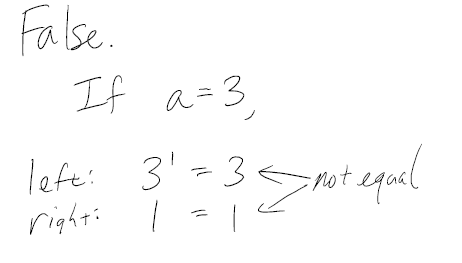 False.
If a=3,
left: 3¹ = 3 not equal
right: 1 = 1